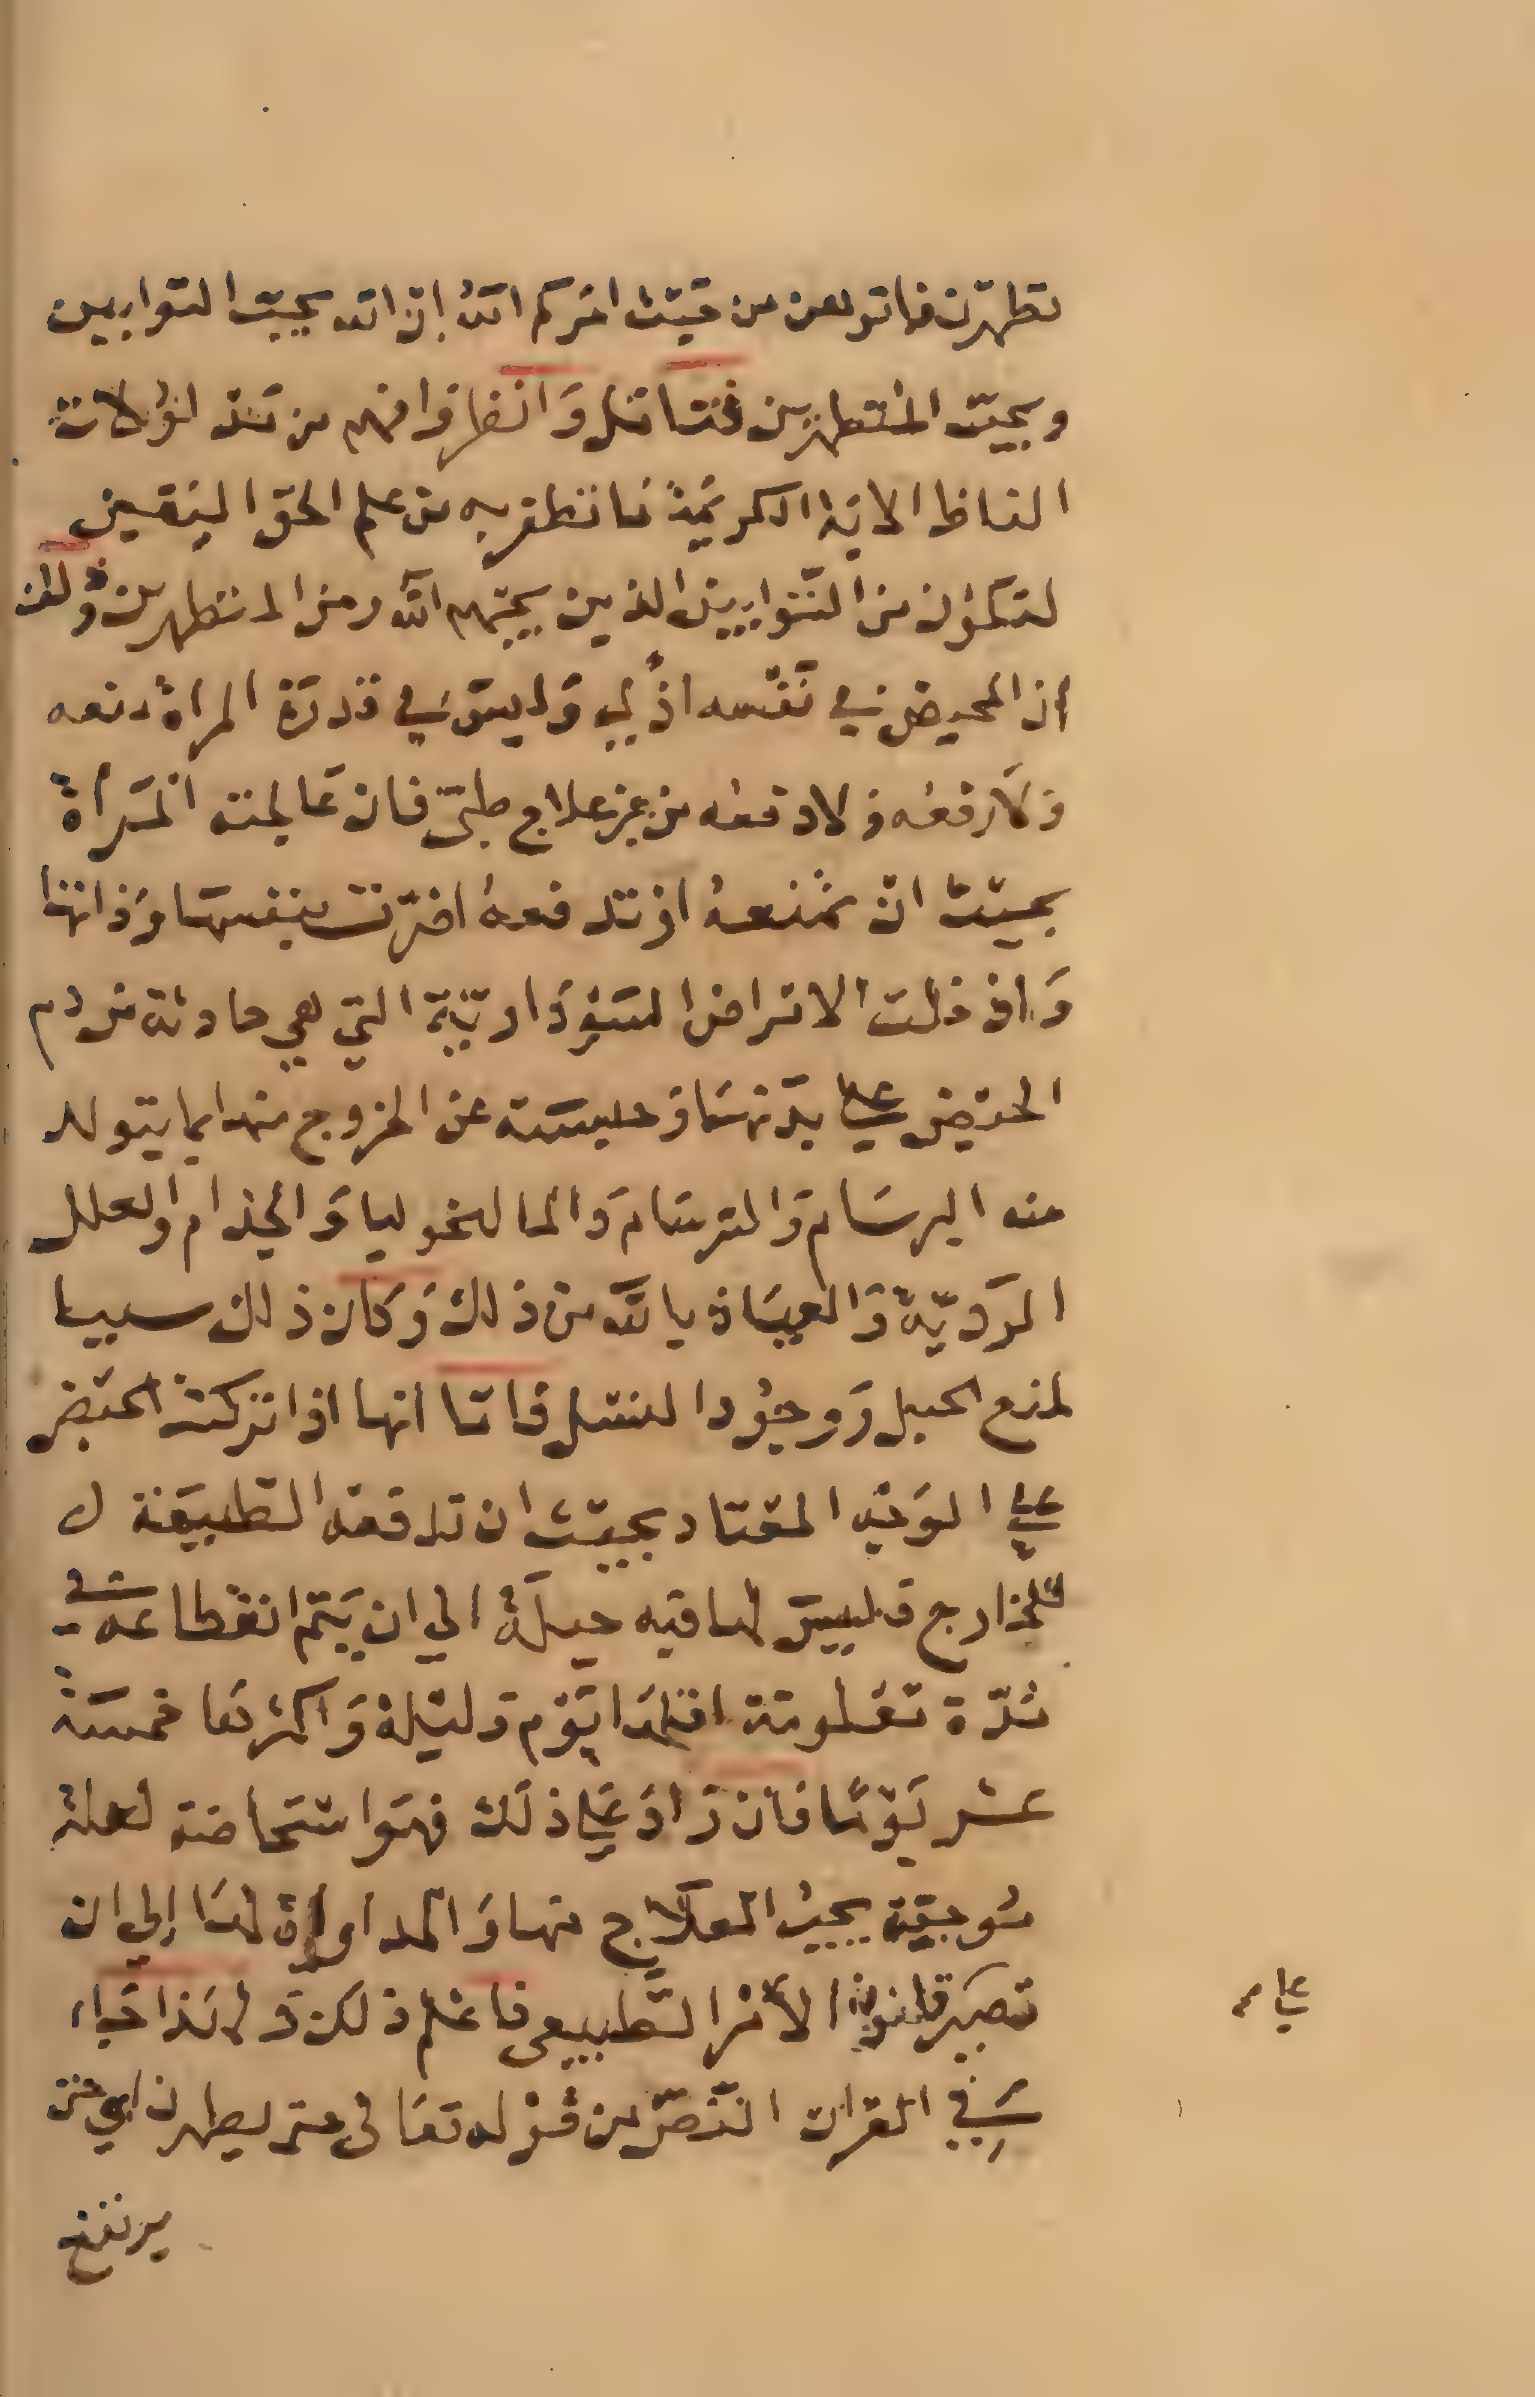 تطهرن فاتوهن من حيث امركم الله ان الله يحب التوابين
ويحب المتطهرين فتامل وانظر وافهم من مدلولات
الفاظ الاية الكريمة ما تظفر به من علم الحق اليقين
لتكون من التوابين الذين يحبهم الله ومن المتطهرين
ان المحيض في نفسه اذي وليس في قدرة المراة منعه
ولا رفعه ولا دفعه من غير علاج طبي فان عالجته المراة
بحيث ان تمنعه او تدفعه اضرت بنفسها وذاتها
وادخلت الامراض السوداوية التي هي حادثة من دم
الحيض علي بدنها وحبسته عن الخروج منها بما يتولد
منه البرسام والسرسام والمالنخوليا والجذام والعلل
الردية والعياذ بالله من ذلك وكان ذلك سببا
لمنع الحبل ووجود النسل واما انها اذا تركت الحيض
علي الوجه المعتاد بحيث ان تدفعه الطبيعة ل
للخارج فليس لها فيه حيلة الي ان يتم انقطاعه في
مدة معلومة اقلها يوم وليلة واكثرها خمسة
عشر يوما فان زاد علي ذلك فهو استحاضة لعلة
موجبة يجب العلاج منها والمداواة لها إلي ان
تصير قانون الأمر الطبيعي فاعلم ذلك ولهذا جاء
في القران النص من قوله تعالى حتى يطهرن اي حتى
يرتفع
علي م